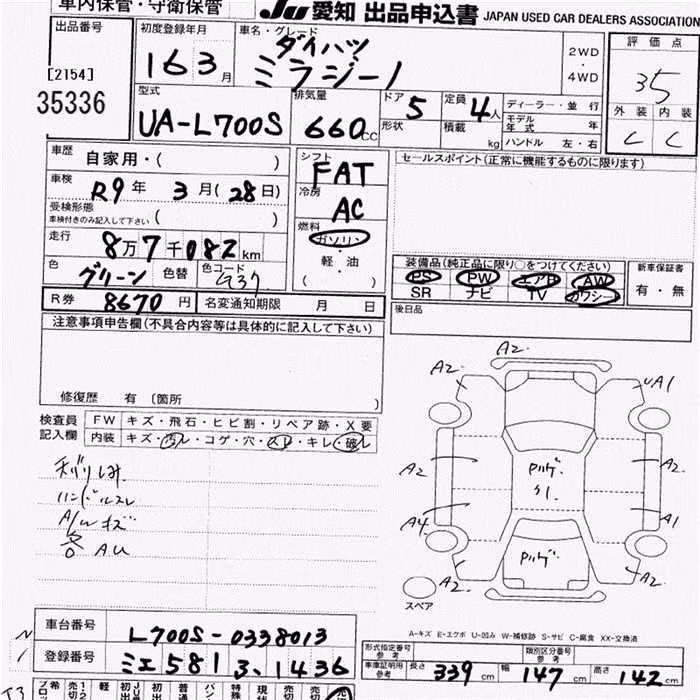 車内保管・守衛保管
JU 愛知 出品申込書 JAPAN USED CAR DEALERS ASSOCIATION
出品番号
[2154]
35336
初度登録年月
16 3月
車名・グレード
ダイハツ
ミラジーノ
2WD
・
4WD
評価点
35
外装 内装
C C
型式
UA-L700S
排気量
660cc
ドア 5
形状
定員 4人
積載 kg
ディーラー・並行
モデル年式 年
ハンドル 左・右
車歴 自家用・( )
車検 R9年 3月(28日)
受検形態
車検付きのみ記入して下さい ( )
走行 8万7千082km
色 グリーン 色替 色コード G37
R券 8670円 名変通知期限 月 日
シフト
FAT
冷房
AC
燃料
ガソリン
・
軽・油
( )
セールスポイント(正常に機能するものに限ります)
装備品(純正品に限り○をつけてください)
PS PW エアB AW
SR ナビ TV カワシート
新車保証書
有・無
後日品
注意事項申告欄(不具合内容等は具体的に記入して下さい)
修復歴 有 〔箇所 〕
検査員
記入欄
FW キズ・飛石・ヒビ割・リペア跡・X要
内装 キズ・汚レ・コゲ・穴・スレ・キレ・破レ
ハンドルスレ
A/Wキズ
各AU
A2
A2
A1
A2
A2
A4
A1
A2
A2
スペア
A-キズ E-エクボ U-凹み W-補修跡 S-サビ C-腐食 XX-交換済
車台番号 L700S-0338013
登録番号 ミエ 581 ミ 1436
形式指定番号
参考
類別区分番号
参考
車庫証明用
参考
長さ 339cm 幅 147cm 高さ 142cm